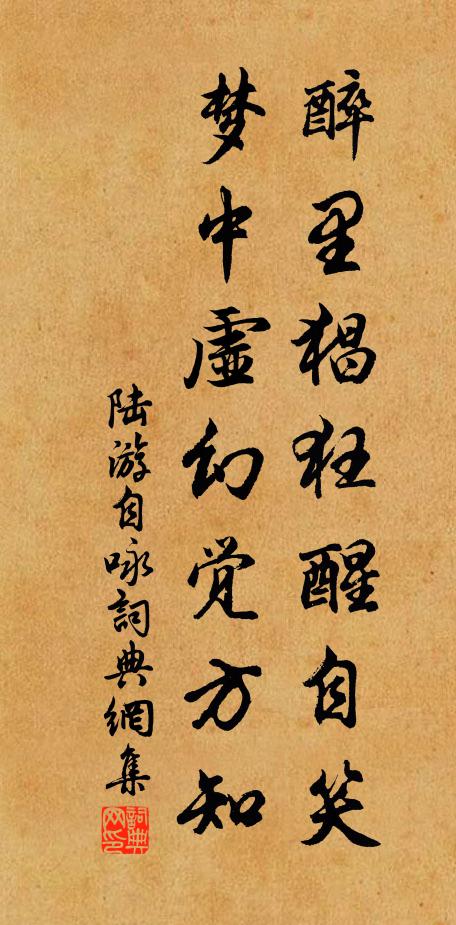 醉里猖狂醒自笑
梦中虚幻觉方知
陆游自咏詞典網集
詞典网印